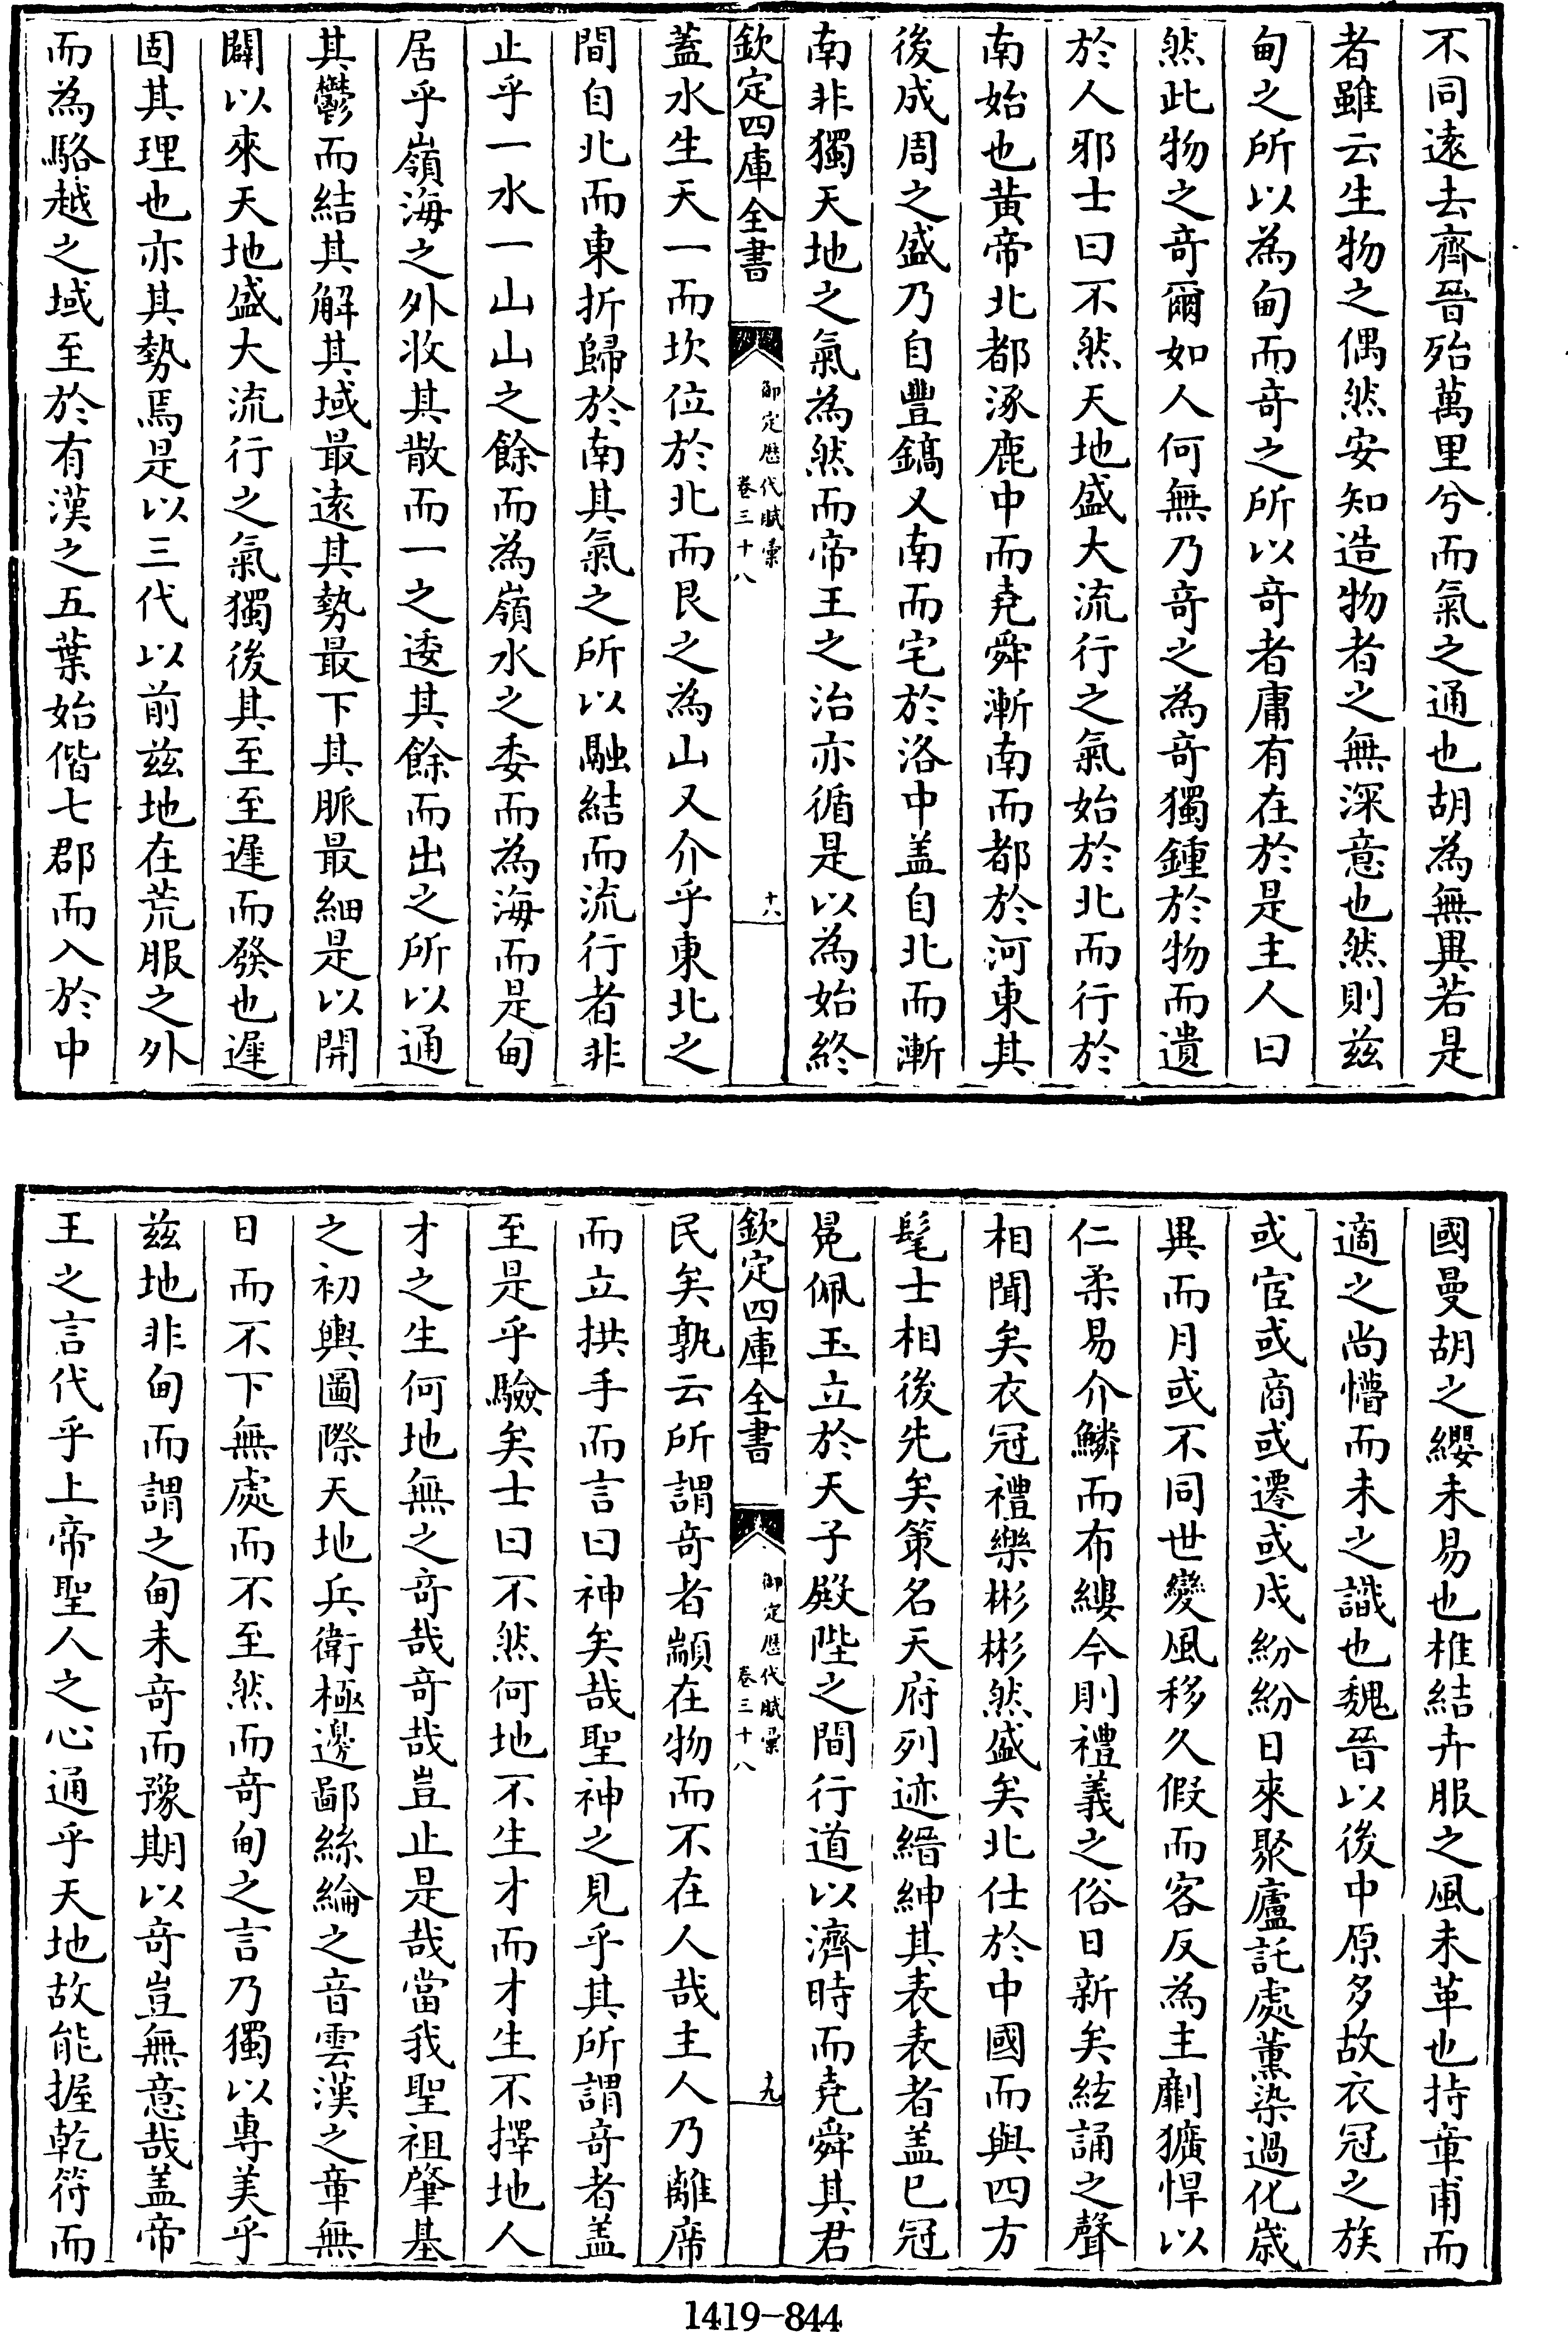 不同遠去齊晉殆萬里兮而氣之通也胡為無異若是
者雖云生物之偶然安知造物者之無深意也然則茲
甸之所以為甸而奇之所以奇者庸有在於是主人曰
然此物之奇爾如人何無乃奇之為奇獨鍾於物而遺
於人邪士曰不然天地盛大流行之氣始於北而行於
南始也黃帝北都涿鹿中而堯舜漸南而都於河東其
後成周之盛乃自豐鎬又南而宅於洛中盖自北而漸
南非獨天地之氣為然而帝王之治亦循是以為始終
欽定四庫全書
御定歷代賦彙
卷三十八
十八
蓋水生天一而坎位於北而艮之為山又介乎東北之
間自北而東折歸於南其氣之所以融結而流行者非
止乎一水一山山之餘而為嶺水之委而為海而是甸
居乎嶺海之外收其散而一之逶其餘而出之所以通
其鬱而結其解其域最遠其勢最下其脈最細是以開
闢以來天地盛大流行之氣獨後其至至遲而發也遲
固其理也亦其勢焉是以三代以前茲地在荒服之外
而為駱越之域至於有漢之五葉始偕七郡而入於中
國曼胡之纓未易也椎結卉服之風未革也持章甫而
適之尚懵而未之識也魏晉以後中原多故衣冠之族
或宦或商或遷或戍紛紛日來聚廬託處薰染過化歲
異而月或不同世變風移久假而客反為主劘獷悍以
仁柔易介鱗而布縷今則禮義之俗日新矣絃誦之聲
相聞矣衣冠禮樂彬彬然盛矣北仕於中國而與四方
髦士相後先矣策名天府列迹縉紳其表表者盖已冠
冕佩玉立於天子殿陛之間行道以濟時而堯舜其君
欽定四庫全書
御定歷代賦彙
卷三十八
十九
民矣孰云所謂奇者顓在物而不在人哉主人乃離席
而立拱手而言曰神矣哉聖神之見乎其所謂奇者盖
至是乎驗矣士曰不然何地不生才而才生不擇地人
才之生何地無之奇哉奇哉豈止是哉當我聖祖肇基
之初輿圖際天地兵衛極邊鄙絲綸之音雲漢之章無
日而不下無處而不至然而奇甸之言乃獨以專美乎
茲地非甸而謂之甸未奇而豫期以奇豈無意哉盖帝
王之言代乎上帝聖人之心通乎天地故能握乾符而
1419-844